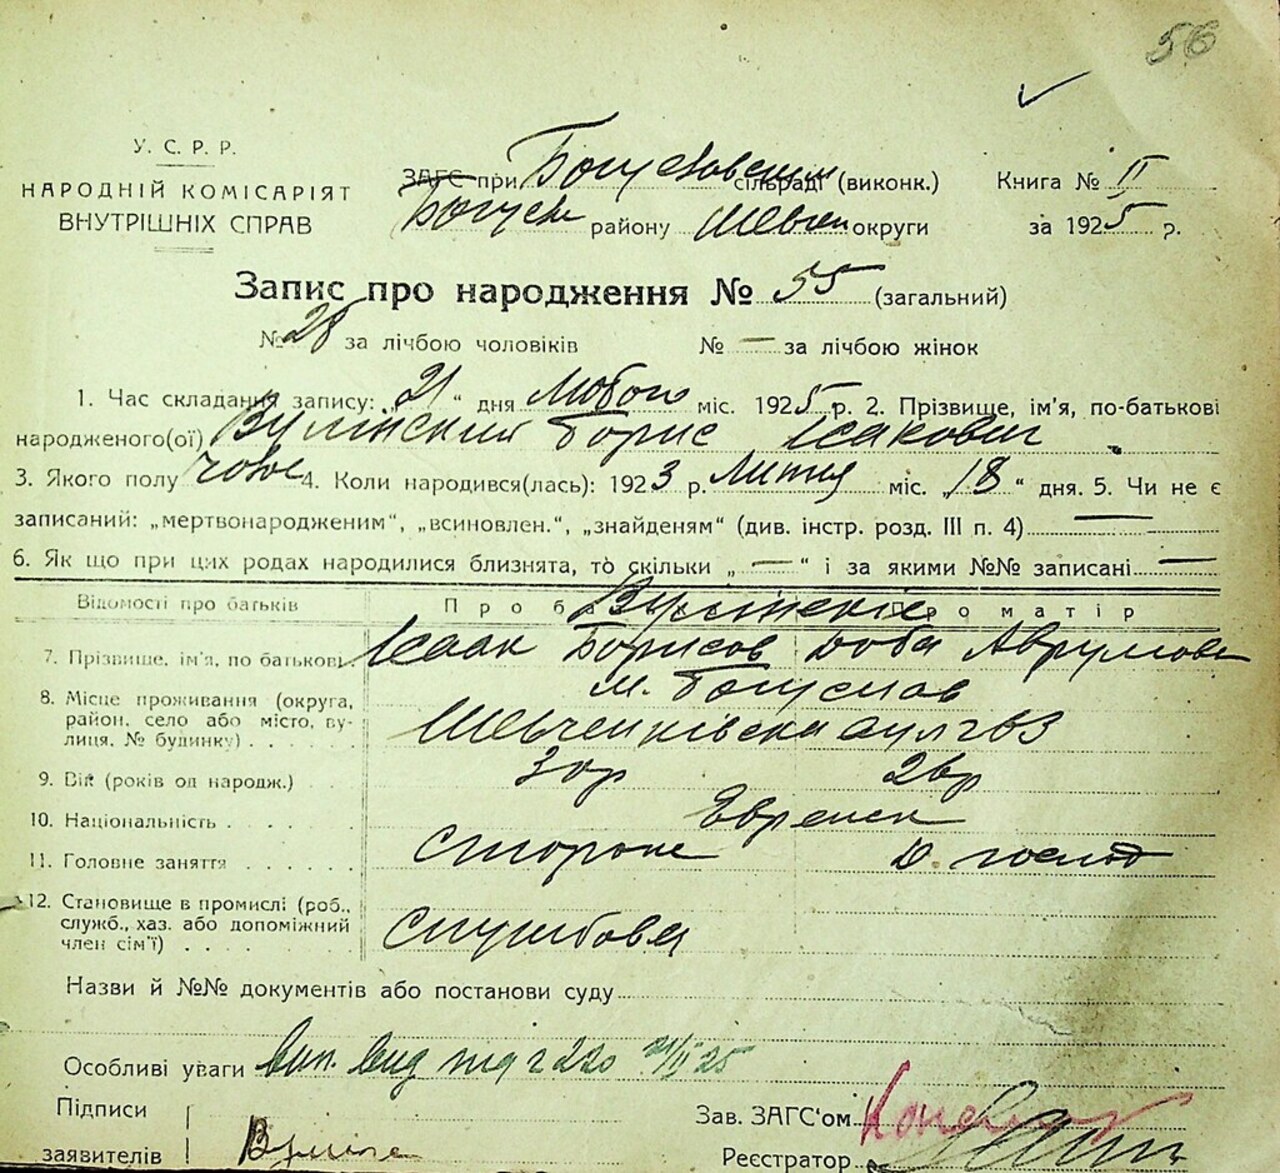 56
У. С. Р. Р.
НАРОДНІЙ КОМІСАРІЯТ
ВНУТРІШНІХ СПРАВ
ЗАГС при Богуславским сільраді (виконк.)
Богусл району Шевчен округи
Книга № II
за 1925 р.
Запис про народження № 55 (загальний)
№ 28 за лічбою чоловіків № — за лічбою жінок
1. Час складання запису: „21“ дня Лютого міс. 1925 р. 2. Прізвище, ім'я, по-батькові
народженого(ої) Вулінский Борис Ісакович
3. Якого полу чолов 4. Коли народився(лась): 1923 р. Лютня міс. „18“ дня. 5. Чи не є
записаний: „мертвонародженим“, „всиновлен.“, „знайденям“ (див. інстр. розд. III п. 4) —
6. Як що при цих родах народилися близнята, то скільки „ — “ і за якими №№ записані —
Відомості про батьків Про батька Про матір
Вулінскіе
7. Прізвище, ім'я, по батькові Ісаак Борисов Доба Аврумова
8. Місце проживання (округа, район, село або місто, вулиця, № будинку) м. Богуслав
Шевченківска вул 63
9. Вік (років од народж.) 30 р 26 р
10. Національність Евреиск
11. Головне заняття Стороже д. господ
12. Становище в промислі (роб., служб., хаз. або допоміжний член сім'ї) Службовя
Назви й №№ документів або постанови суду
Особливі уваги вип. вид під № 220 21/II 25
Підписи
заявителів
Зав. ЗАГС'ом
Реєстратор